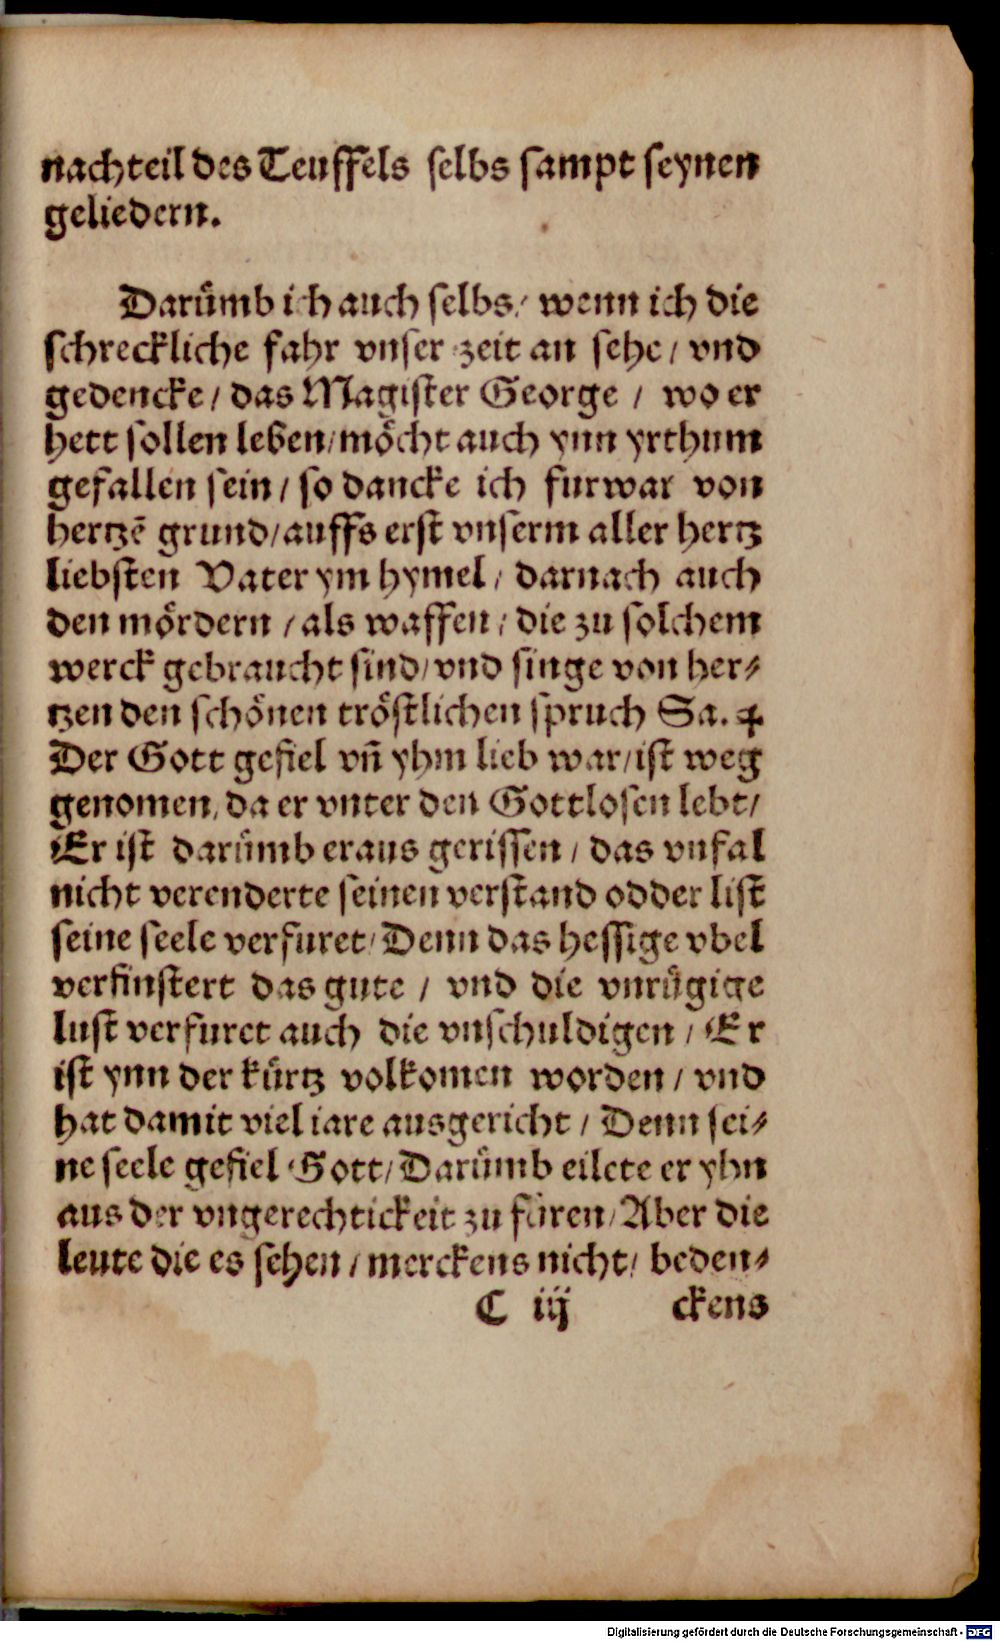 nachteil des Teuffels selbs sampt seynen
geliedern.
Darůmb ich auch selbs / wenn ich die
schreckliche fahr vnser zeit an sehe / vnd
gedencke / das Magister George / wo er
hett sollen leben / möcht auch ynn yrthum
gefallen sein / so dancke ich furwar von
hertzē grund / auffs erst vnserm aller hertz
liebsten Vater ym hymel / darnach auch
den mördern / als waffen / die zu solchem
werck gebraucht sind / vnd singe von her⸗
tzen den schönen tröstlichen spruch Sa. 4
Der Gott gefiel vñ yhm lieb war / ist weg
genomen, da er vnter den Gottlosen lebt /
Er ist darůmb eraus gerissen / das vnfal
nicht verenderte seinen verstand odder list
seine seele verfuret / Denn das hessige vbel
verfinstert das gute / vnd die vnrůgige
lust verfuret auch die vnschuldigen / Er
ist ynn der kůrtz volkomen worden / vnd
hat damit viel iare ausgericht / Denn sei⸗
ne seele gefiel Gott / Darůmb eilete er yhn
aus der vngerechtickeit zu füren / Aber die
leute die es sehen / merckens nicht / beden⸗
C iij ckens
Digitalisierung gefördert durch die Deutsche Forschungsgemeinschaft - DFG